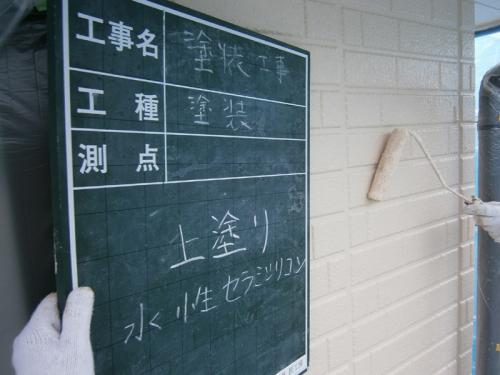 工事名 塗装工事
工種 塗装
測点
上塗り
水性セラミシリコン